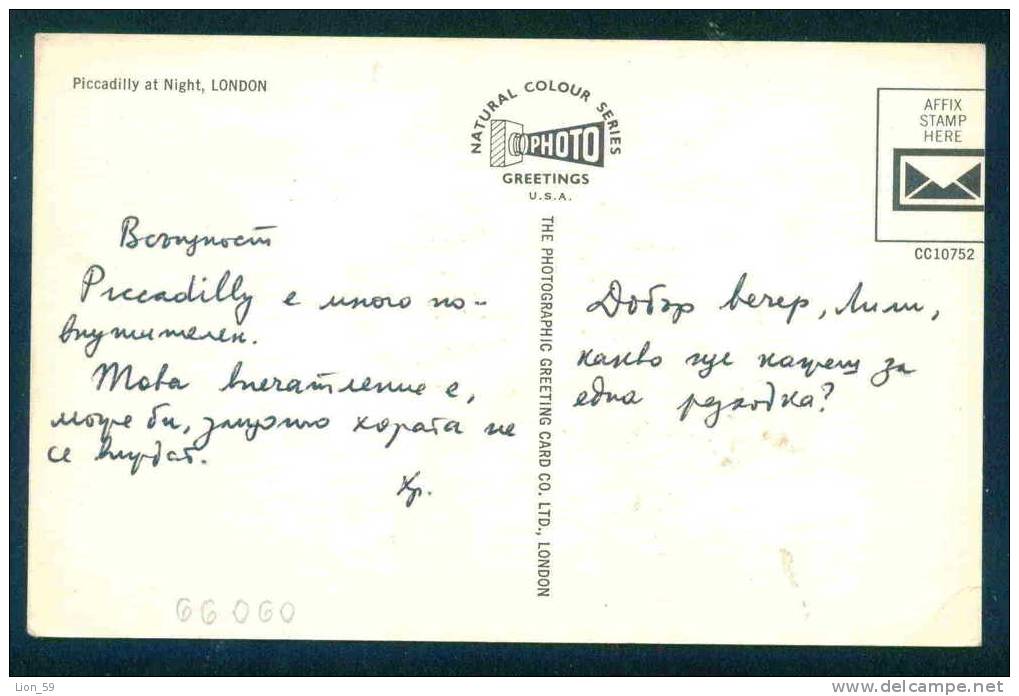 Piccadilly at Night, LONDON
NATURAL COLOUR SERIES
PHOTO
GREETINGS
U.S.A.
AFFIX
STAMP
HERE
CC10752
THE PHOTOGRAPHIC GREETING CARD CO. LTD., LONDON
Всъщност
Piccadilly е много по-
внушителен.
Това впечатление е,
може би, защото хората не
се виждат.
Хр.
Добър вечер, Лили,
какво ще кажеш за
една разходка?
66060
Lion_59
www.delcampe.net